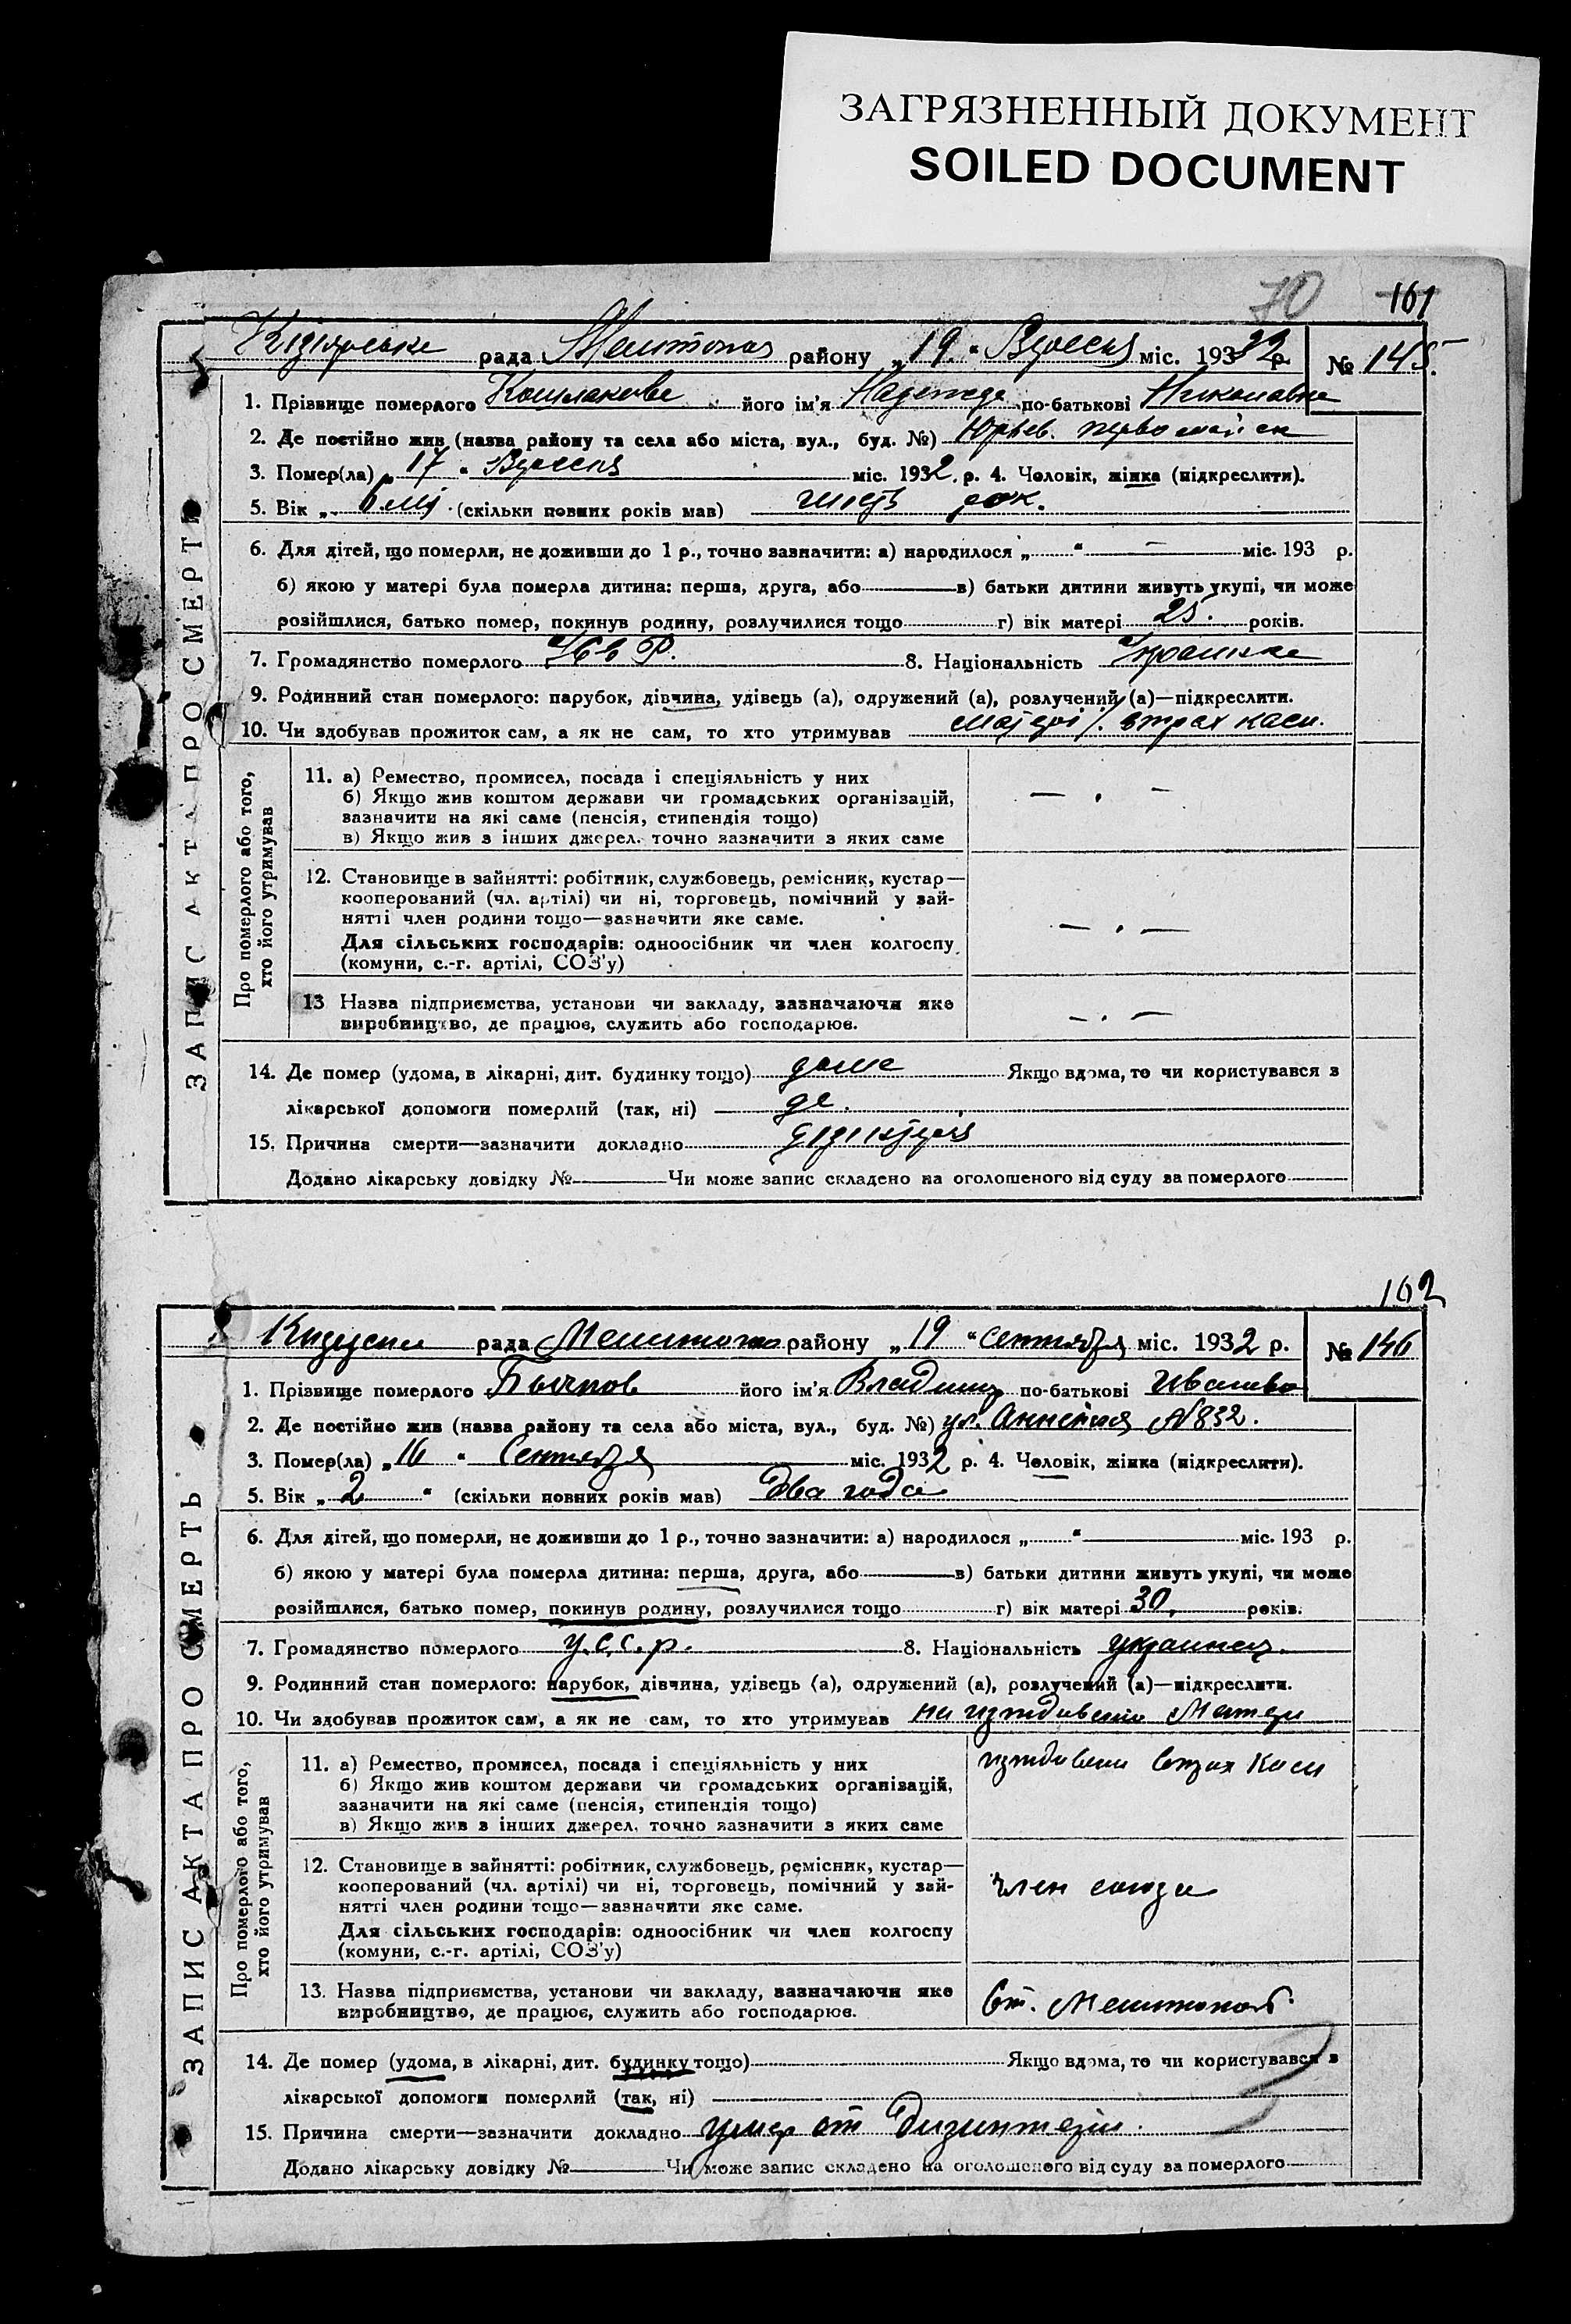 ЗАГРЯЗНЕННЫЙ ДОКУМЕНТ
SOILED DOCUMENT
70 161
рада Мелитопол району „19“ Вересня міс. 1932 р. № 145.
1. Прізвище померлого його ім'я Надежда по-батькові Николавна
2. Де постійно жив (назва району та села або міста, вул., буд. №) первомайск
3. Помер(ла) „17“ Вересня міс. 1932 р. 4. Чоловік, жінка (підкреслити).
5. Вік „ “ (скільки повних років мав) шість рок.
6. Для дітей, що померли, не доживши до 1 р., точно зазначити: а) народилося „ “ — міс. 193 р.
б) якою у матері була померла дитина: перша, друга, або в) батьки дитини живуть укупі, чи може
розійшлися, батько помер, покинув родину, розлучилися тощо г) вік матері 25. років.
7. Громадянство померлого 8. Національність
9. Родинний стан померлого: парубок, дівчина, удівець (а), одружений (а), розлучений (а)—підкреслити.
10. Чи здобував прожиток сам, а як не сам, то хто утримував страх каси.
ЗАПИС АКТА ПРО СМЕРТЬ
Про померлого або того,
хто його утримував
11. а) Ремество, промисел, посада і спеціяльність у них
б) Якщо жив коштом держави чи громадських організацій,
зазначити на які саме (пенсія, стипендія тощо)
в) Якщо жив з інших джерел, точно зазначити з яких саме
— . —
12. Становище в зайнятті: робітник, службовець, ремісник, кустар—
кооперований (чл. артілі) чи ні, торговець, помічний у зай-
нятті член родини тощо—зазначити яке саме.
Для сільських господарів: одноосібник чи член колгоспу
(комуни, с.-г. артілі, СОЗ'у)
— . —
13 Назва підприємства, установи чи закладу, зазначаючи яке
виробництво, де працює, служить або господарює.
— . —
14. Де помер (удома, в лікарні, дит. будинку тощо) дома Якщо вдома, то чи користувався з
лікарської допомоги померлий (так, ні)
15. Причина смерти—зазначити докладно
Додано лікарську довідку № Чи може запис складено на оголошеного від суду за померлого
162
рада Мелитопол району „19“ сентября міс. 1932 р. № 146
1. Прізвище померлого його ім'я Владимир по-батькові Иванов
2. Де постійно жив (назва району та села або міста, вул., буд. №) ул. №832.
3. Помер(ла) „16“ Сентября міс. 1932 р. 4. Чоловік, жінка (підкреслити).
5. Вік „2“ (скільки повних років мав) два года
6. Для дітей, що померли, не доживши до 1 р., точно зазначити: а) народилося „ “ міс. 193 р.
б) якою у матері була померла дитина: перша, друга, або в) батьки дитини живуть укупі, чи може
розійшлися, батько помер, покинув родину, розлучилися тощо г) вік матері 30, років.
7. Громадянство померлого У.С.С.Р. 8. Національність украинец.
9. Родинний стан померлого: парубок, дівчина, удівець (а), одружений (а), розлучений (а)—підкреслити.
10. Чи здобував прожиток сам, а як не сам, то хто утримував на иждивении Матери
ЗАПИС АКТА ПРО СМЕРТЬ
Про померлого або того,
хто його утримував
11. а) Ремество, промисел, посада і спеціяльність у них
б) Якщо жив коштом держави чи громадських організацій,
зазначити на які саме (пенсія, стипендія тощо)
в) Якщо жив з інших джерел, точно зазначити з яких саме
иждивении страх Каси
12. Становище в зайнятті: робітник, службовець, ремісник, кустар—
кооперований (чл. артілі) чи ні, торговець, помічний у зай-
нятті член родини тощо—зазначити яке саме.
Для сільських господарів: одноосібник чи член колгоспу
(комуни, с.-г. артілі, СОЗ'у)
член союза
13. Назва підприємства, установи чи закладу, зазначаючи яке
виробництво, де працює, служить або господарює.
Ст. Мелитополь
14. Де помер (удома, в лікарні, дит. будинку тощо) Якщо вдома, то чи користувався з
лікарської допомоги померлий (так, ні)
15. Причина смерти—зазначити докладно умер от Дизинтерии.
Додано лікарську довідку № Чи може запис складено на оголошеного від суду за померлого